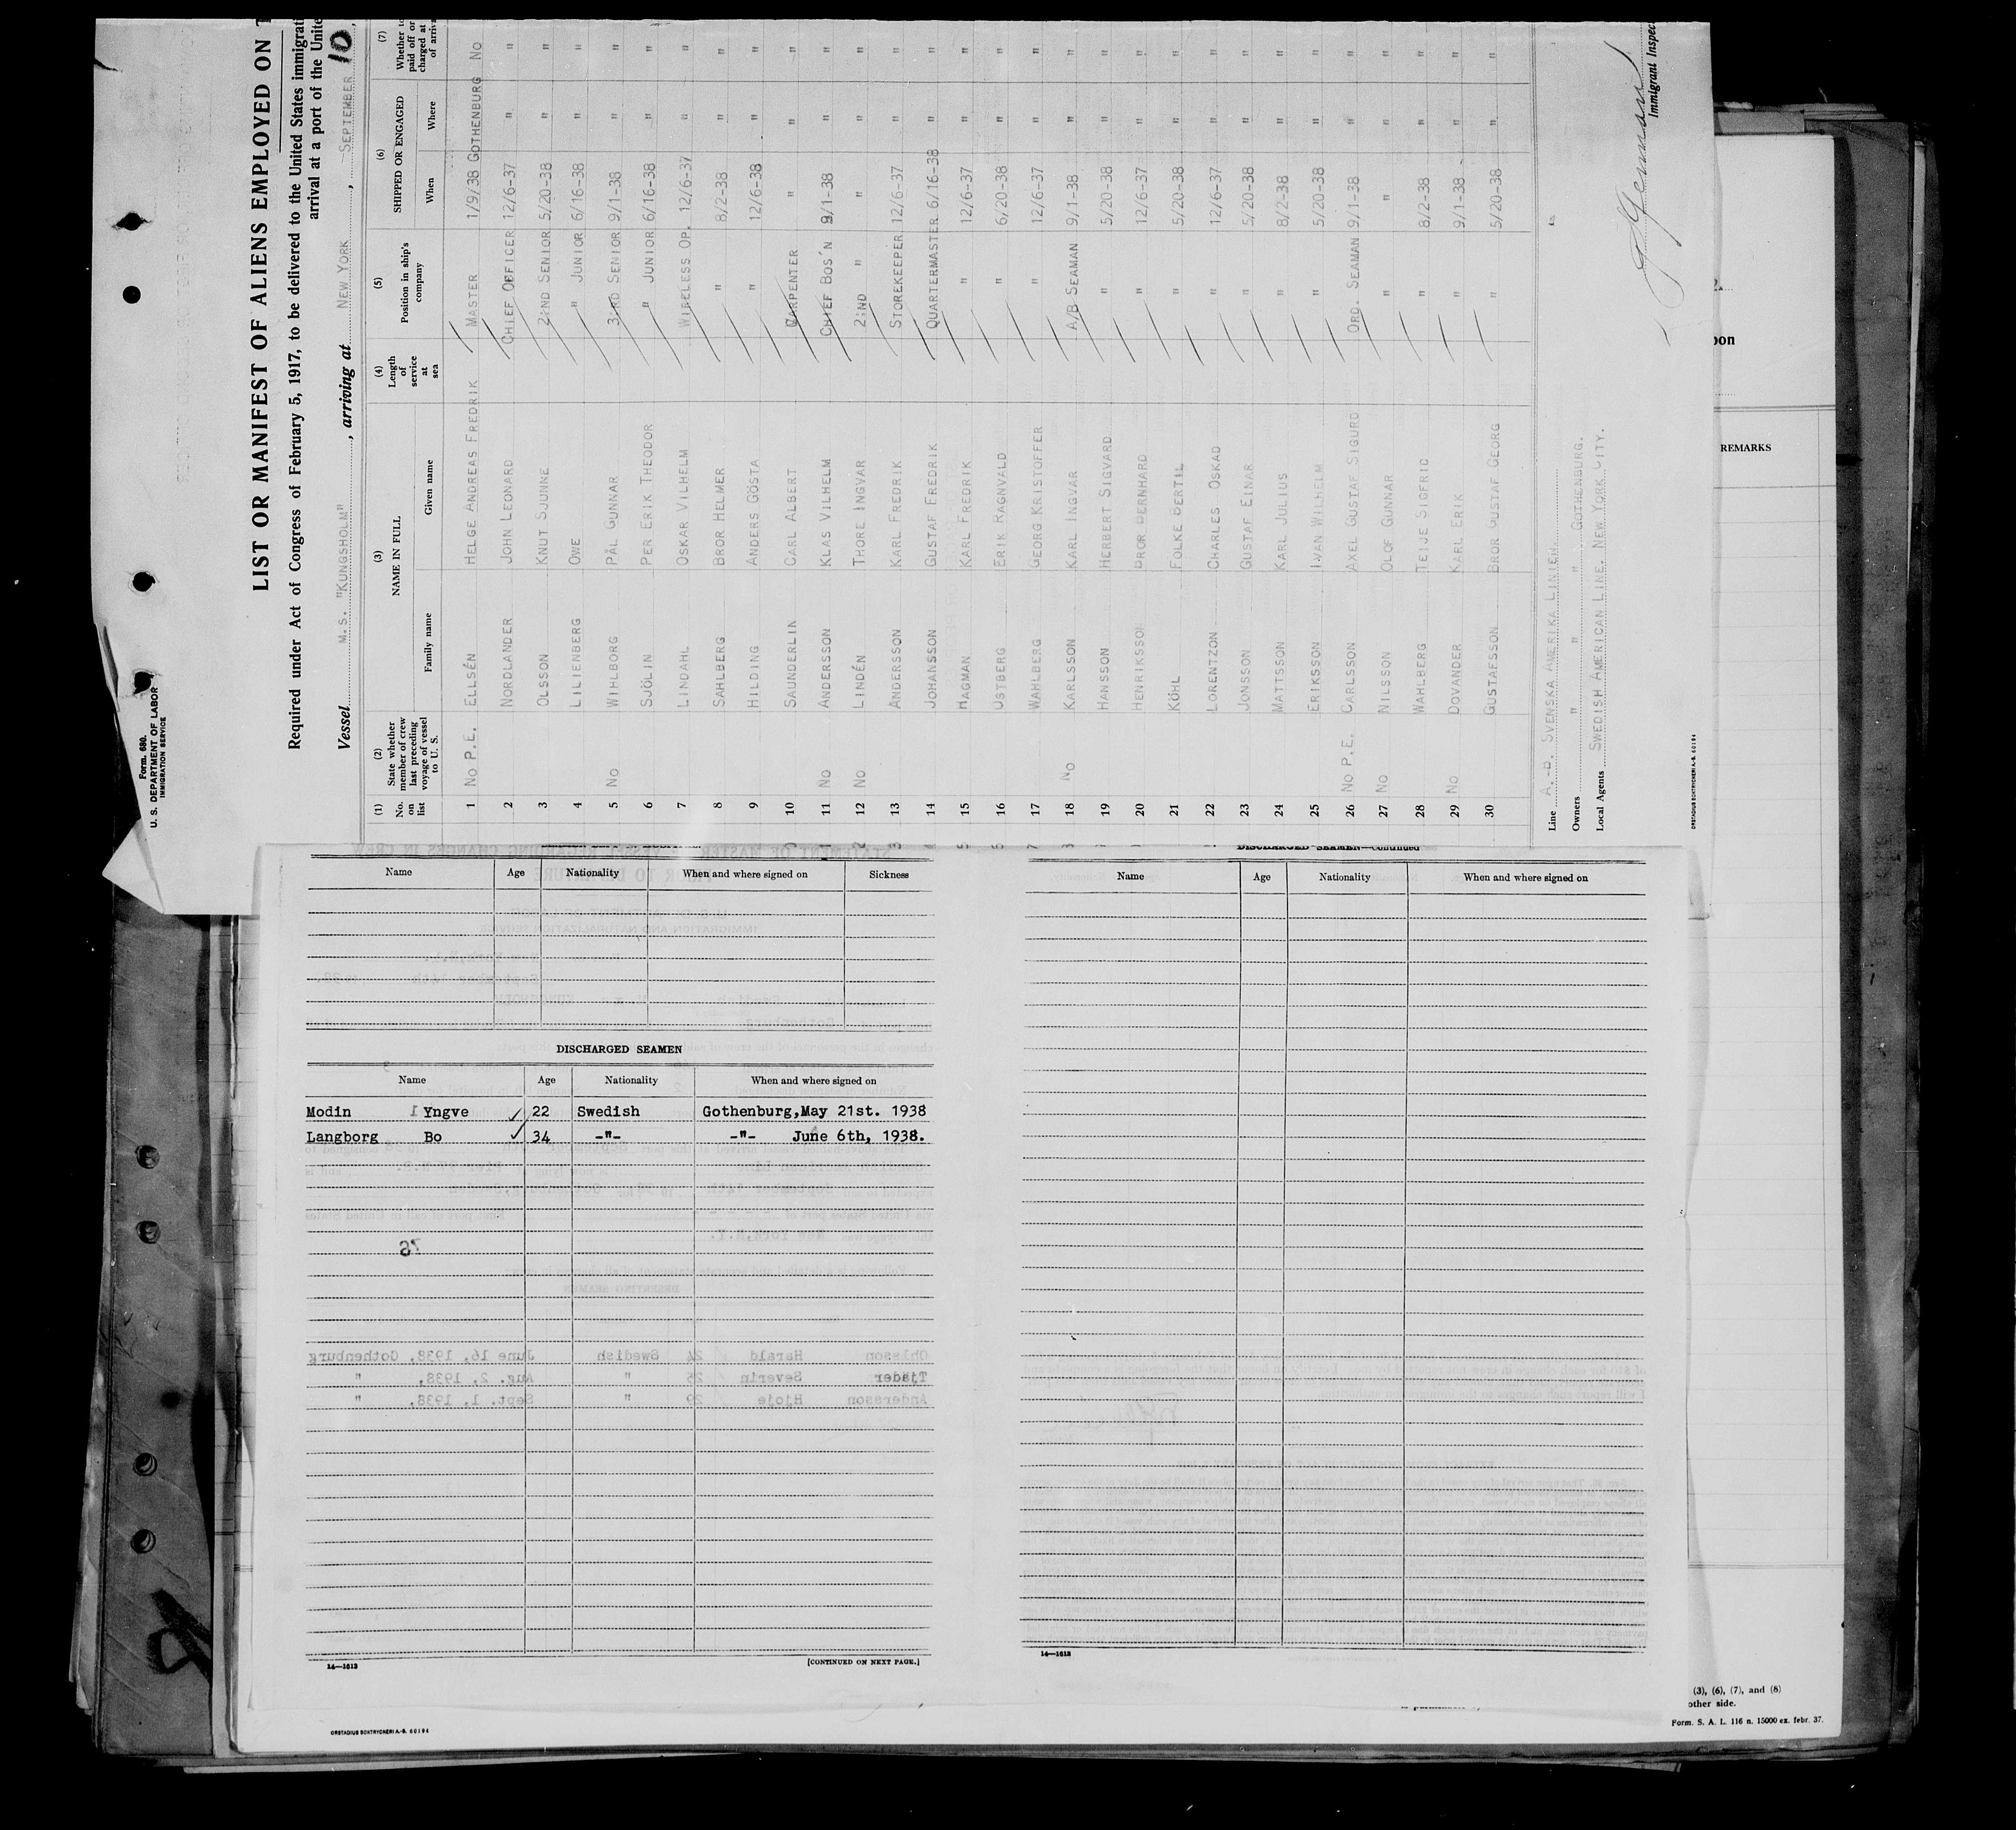 Form 680.
U. S. DEPARTMENT OF LABOR
IMMIGRATION SERVICE
LIST OR MANIFEST OF ALIENS EMPLOYED ON
Required under Act of Congress of February 5, 1917, to be delivered to the United States
arrival at a port of the
Vessel M.S. "KUNGSHOLM", arriving at NEW YORK, SEPTEMBER 10,
(1) No. on list (2) State whether member of crew last preceding voyage of vessel to U. S. (3) NAME IN FULL Family name Given name (4) Length of service at sea (5) Position in ship's company (6) SHIPPED OR ENGAGED When Where (7) Whether
paid off or
charged at
1 NO P.E. ELLSÉN HELGE ANDREAS FREDRIK MASTER 1/9/38 GOTHENBURG NO
2 NORDLANDER JOHN LEONARD CHIEF OFFICER 12/6-37 " "
3 OLSSON KNUT SJUNNE 2:ND SENIOR 5/20-38 " "
4 LILIENBERG OWE " JUNIOR 6/16-38 " "
5 NO WIHLBORG PÅL GUNNAR 3:RD SENIOR 9/1-38 " "
6 SJÖLIN PER ERIK THEODOR " JUNIOR 6/16-38 " "
7 LINDAHL OSKAR VILHELM WIRELESS OP. 12/6-37 " "
8 SAHLBERG BROR HELMER " 8/2-38 " "
9 HILDING ANDERS GÖSTA " 12/6-38 " "
10 SAUNDERLIN CARL ALBERT CARPENTER " " "
11 NO ANDERSSON KLAS VILHELM CHIEF BOS'N 9/1-38 " "
12 NO LINDÉN THORE INGVAR 2:ND " " " "
13 ANDERSSON KARL FREDRIK STOREKEEPER 12/6-37 " "
14 JOHANSSON GUSTAF FREDRIK QUARTERMASTER 6/16-38 " "
15 HAGMAN KARL FREDRIK " 12/6-37 " "
16 ÖSTBERG ERIK RAGNVALD " 6/20-38 " "
17 WAHLBERG GEORG KRISTOFFER " 12/6-37 " "
18 NO KARLSSON KARL INGVAR A/B SEAMAN 9/1-38 " "
19 HANSSON HERBERT SIGVARD " 5/20-38 " "
20 HENRIKSSON BROR BERNHARD " 12/6-37 " "
21 KÖHL FOLKE BERTIL " 5/20-38 " "
22 LORENTZON CHARLES OSKAD " 12/6-37 " "
23 JONSSON GUSTAF EINAR " 5/20-38 " "
24 MATTSSON KARL JULIUS " 8/2-38 " "
25 ERIKSSON IVAN WILHELM " 5/20-38 " "
26 NO P.E. CARLSSON AXEL GUSTAF SIGURD ORD. SEAMAN 9/1-38 " "
27 NO NILSSON OLOF GUNNAR " " " "
28 WAHLBERG TEIJE SIGFRID " 8/2-38 " "
29 NO DOVANDER KARL ERIK " 9/1-38 " "
30 GUSTAFSSON BROR GUSTAF GEORG " 5/20-38 " "
Line A.-B. SVENSKA AMERIKA LINIEN.
Owners " " " GOTHENBURG.
Local Agents SWEDISH AMERICAN LINE. NEW YORK CITY.
ORSTADIUS BOKTRYCKERI A.-B. 60194
REMARKS
Name Age Nationality When and where signed on Sickness
DISCHARGED SEAMEN
Name Age Nationality When and where signed on
Modin Yngve 22 Swedish Gothenburg,May 21st. 1938
Langborg Bo 34 -"- -"- June 6th, 1938.
Ohlsson Harald 24 Swedish June 16, 1938, Gothenburg
Tjader Severin 25 " Aug. 2, 1938, "
Andersson Hjoje 29 " Sept. 1, 1938, "
14—1613 [CONTINUED ON NEXT PAGE.]
DISCHARGED SEAMEN—Continued
Name Age Nationality When and where signed on
14—1613
(3), (6), (7), and (8)
other side.
Form. S. A. L. 116 n. 15000 ex. febr. 37.
ORSTADIUS BOKTRYCKERI A.-B. 60194